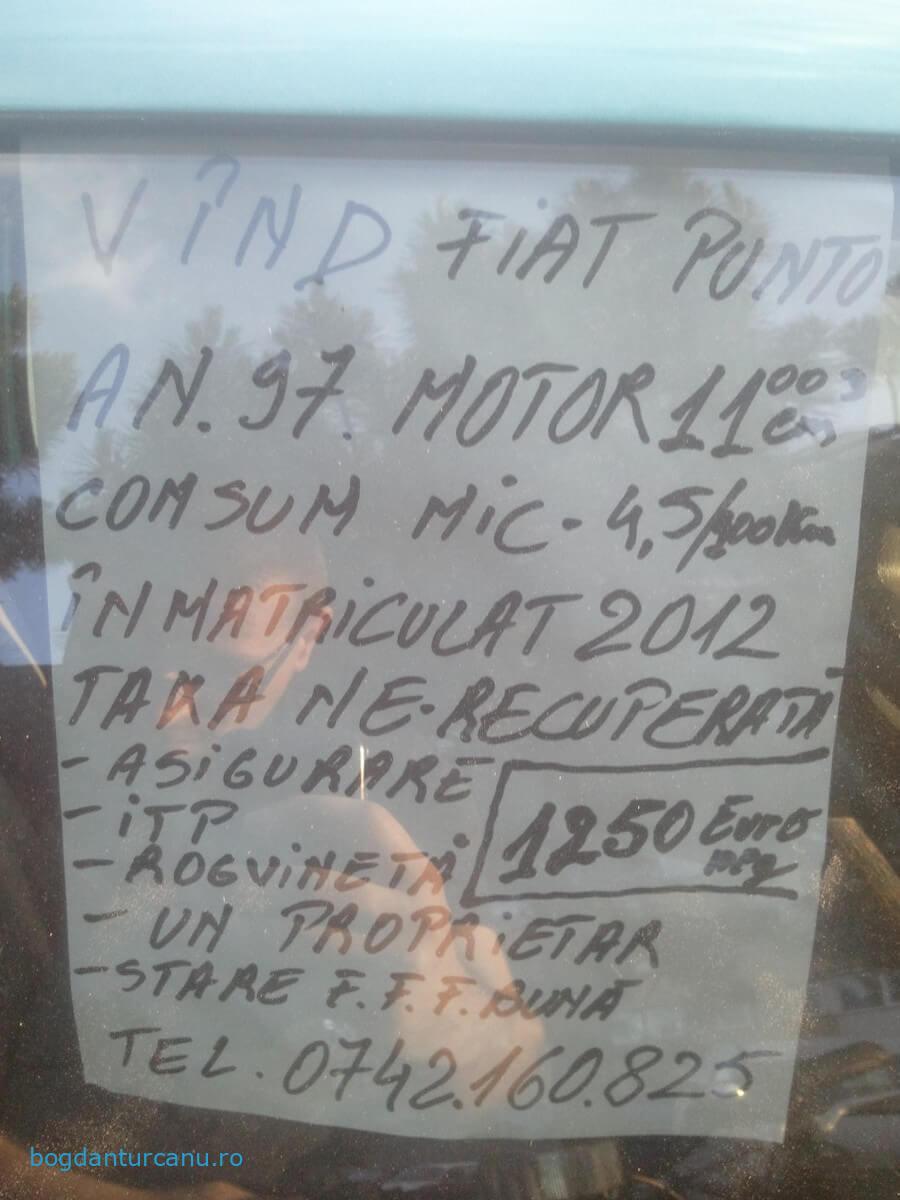 VÎND FiAT PUNTO
AN. 97. MOTOR 1100 cm3
CONSUM MiC - 4,5/100Km
ÎNMATRiCULAT 2012
TAXA NE-RECUPERATĂ
- ASiGURARE
- iTP
1250 Euro
- ROGViNETĂ
- UN PROPRiETAR
- STARE F.F.F. BUNĂ
TEL. 0742.160.825
bogdanturcanu.ro